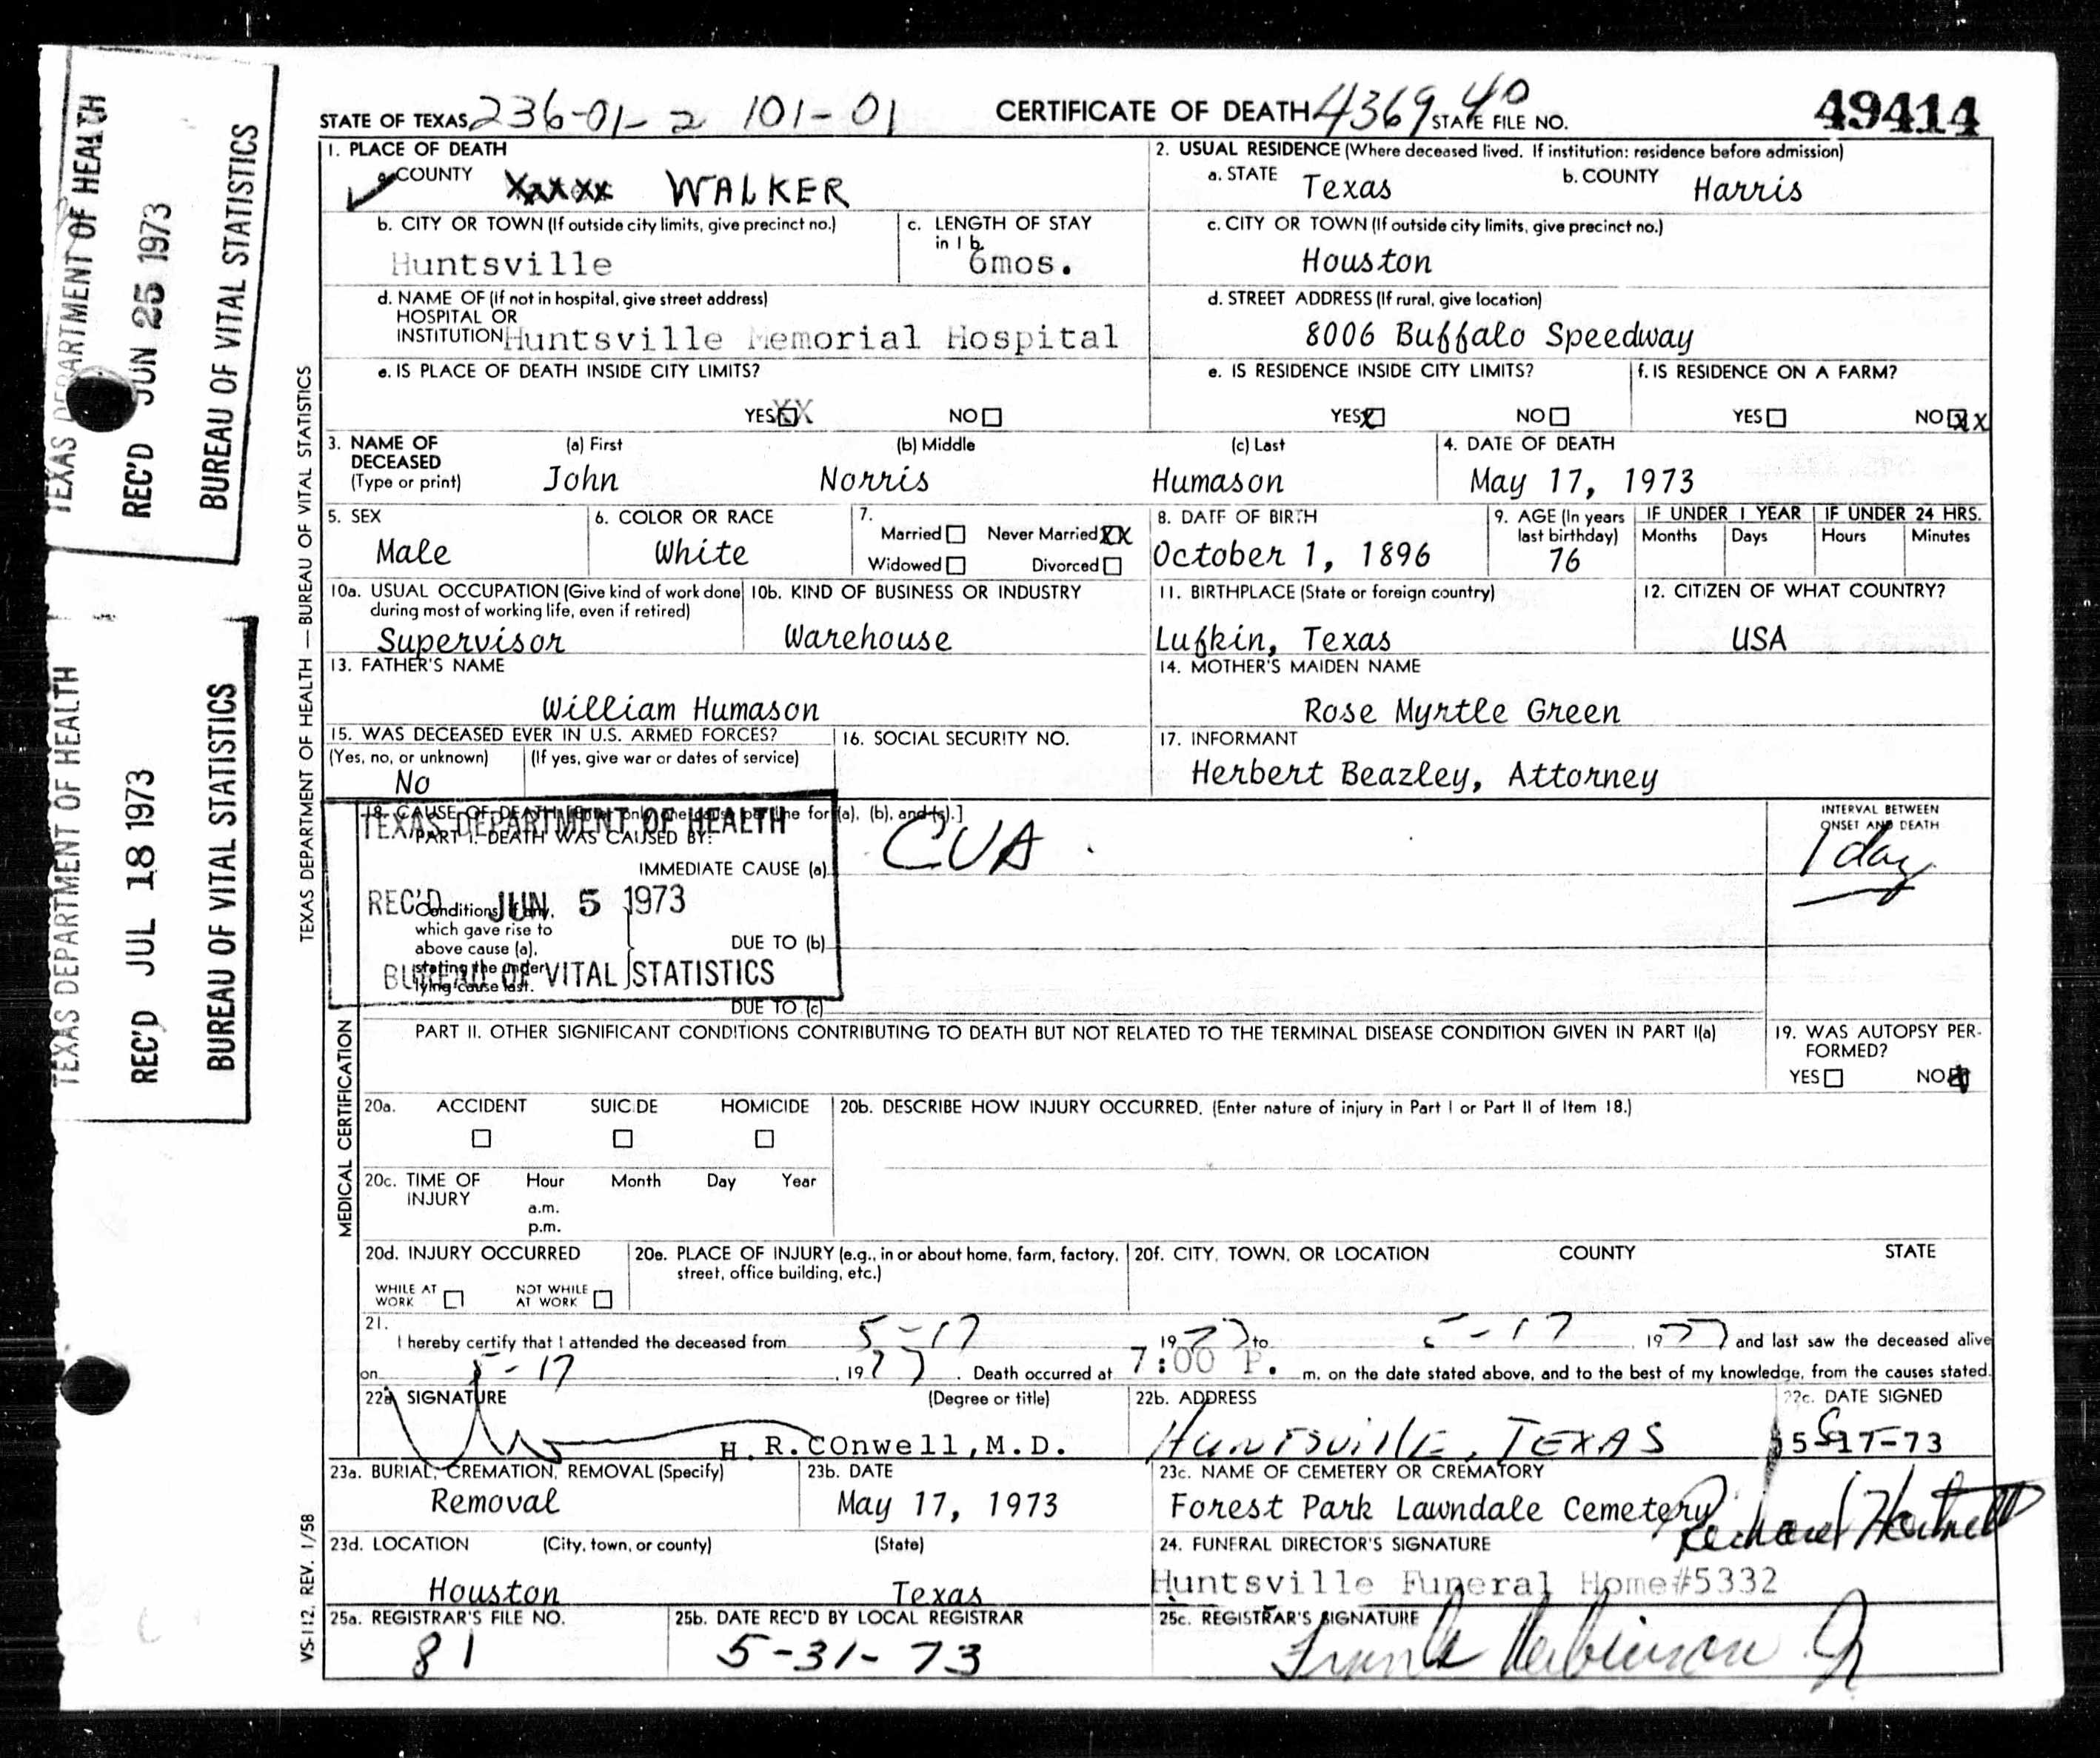 TEXAS DEPARTMENT OF HEALTH
REC'D JUN 25 1973
BUREAU OF VITAL STATISTICS
TEXAS DEPARTMENT OF HEALTH
REC'D JUL 18 1973
BUREAU OF VITAL STATISTICS
TEXAS DEPARTMENT OF HEALTH — BUREAU OF VITAL STATISTICS
VS-112, REV. 1/58
STATE OF TEXAS 236-01-2 101-01 CERTIFICATE OF DEATH 4369 40 STATE FILE NO. 49414
1. PLACE OF DEATH
a. COUNTY WALKER
2. USUAL RESIDENCE (Where deceased lived. If institution: residence before admission)
a. STATE Texas b. COUNTY Harris
b. CITY OR TOWN (If outside city limits, give precinct no.)
Huntsville
c. LENGTH OF STAY in 1 b.
6mos.
c. CITY OR TOWN (If outside city limits, give precinct no.)
Houston
d. NAME OF (If not in hospital, give street address)
HOSPITAL OR
INSTITUTION Huntsville Memorial Hospital
d. STREET ADDRESS (If rural, give location)
8006 Buffalo Speedway
e. IS PLACE OF DEATH INSIDE CITY LIMITS?
YES XX NO
e. IS RESIDENCE INSIDE CITY LIMITS?
YES X NO
f. IS RESIDENCE ON A FARM?
YES NO XX
3. NAME OF DECEASED (Type or print)
(a) First (b) Middle (c) Last
John Norris Humason
4. DATE OF DEATH
May 17, 1973
5. SEX
Male
6. COLOR OR RACE
White
7.
Married Never Married XX
Widowed Divorced
8. DATE OF BIRTH
October 1, 1896
9. AGE (In years last birthday)
76
IF UNDER 1 YEAR
Months Days
IF UNDER 24 HRS.
Hours Minutes
10a. USUAL OCCUPATION (Give kind of work done
during most of working life, even if retired)
Supervisor
10b. KIND OF BUSINESS OR INDUSTRY
Warehouse
11. BIRTHPLACE (State or foreign country)
Lufkin, Texas
12. CITIZEN OF WHAT COUNTRY?
USA
13. FATHER'S NAME
William Humason
14. MOTHER'S MAIDEN NAME
Rose Myrtle Green
15. WAS DECEASED EVER IN U.S. ARMED FORCES?
(Yes, no, or unknown) (If yes, give war or dates of service)
No
16. SOCIAL SECURITY NO.
17. INFORMANT
Herbert Beazley, Attorney
MEDICAL CERTIFICATION
18. CAUSE OF DEATH [Enter only one cause per line for (a), (b), and (c).]
PART I. DEATH WAS CAUSED BY:
IMMEDIATE CAUSE (a) CVA
INTERVAL BETWEEN
ONSET AND DEATH
1 day
TEXAS DEPARTMENT OF HEALTH
REC'D JUN 5 1973
BUREAU OF VITAL STATISTICS
Conditions, if any,
which gave rise to
above cause (a),
stating the under-
lying cause last.
DUE TO (b)
DUE TO (c)
PART II. OTHER SIGNIFICANT CONDITIONS CONTRIBUTING TO DEATH BUT NOT RELATED TO THE TERMINAL DISEASE CONDITION GIVEN IN PART I(a)
19. WAS AUTOPSY PER-
FORMED?
YES NO
20a. ACCIDENT SUICIDE HOMICIDE
20b. DESCRIBE HOW INJURY OCCURRED. (Enter nature of injury in Part I or Part II of Item 18.)
20c. TIME OF INJURY
Hour Month Day Year
a.m.
p.m.
20d. INJURY OCCURRED
WHILE AT WORK NOT WHILE AT WORK
20e. PLACE OF INJURY (e.g., in or about home, farm, factory,
street, office building, etc.)
20f. CITY, TOWN, OR LOCATION COUNTY STATE
21.
I hereby certify that I attended the deceased from 5-17 1973 to 5-17, 1973 and last saw the deceased alive
on 5-17, 1973. Death occurred at 7:00 P. m. on the date stated above, and to the best of my knowledge, from the causes stated.
22a. SIGNATURE (Degree or title)
H. R. COnwell, M.D.
22b. ADDRESS
HUNTSVILLE, TEXAS
22c. DATE SIGNED
23a. BURIAL, CREMATION, REMOVAL (Specify)
Removal
23b. DATE
May 17, 1973
23c. NAME OF CEMETERY OR CREMATORY
Forest Park Lawndale Cemetery
23d. LOCATION (City, town, or county) (State)
Houston Texas
24. FUNERAL DIRECTOR'S SIGNATURE
Huntsville Funeral Home#5332
25a. REGISTRAR'S FILE NO.
81
25b. DATE REC'D BY LOCAL REGISTRAR
5-31-73
25c. REGISTRAR'S SIGNATURE
Frank Robinson Jr